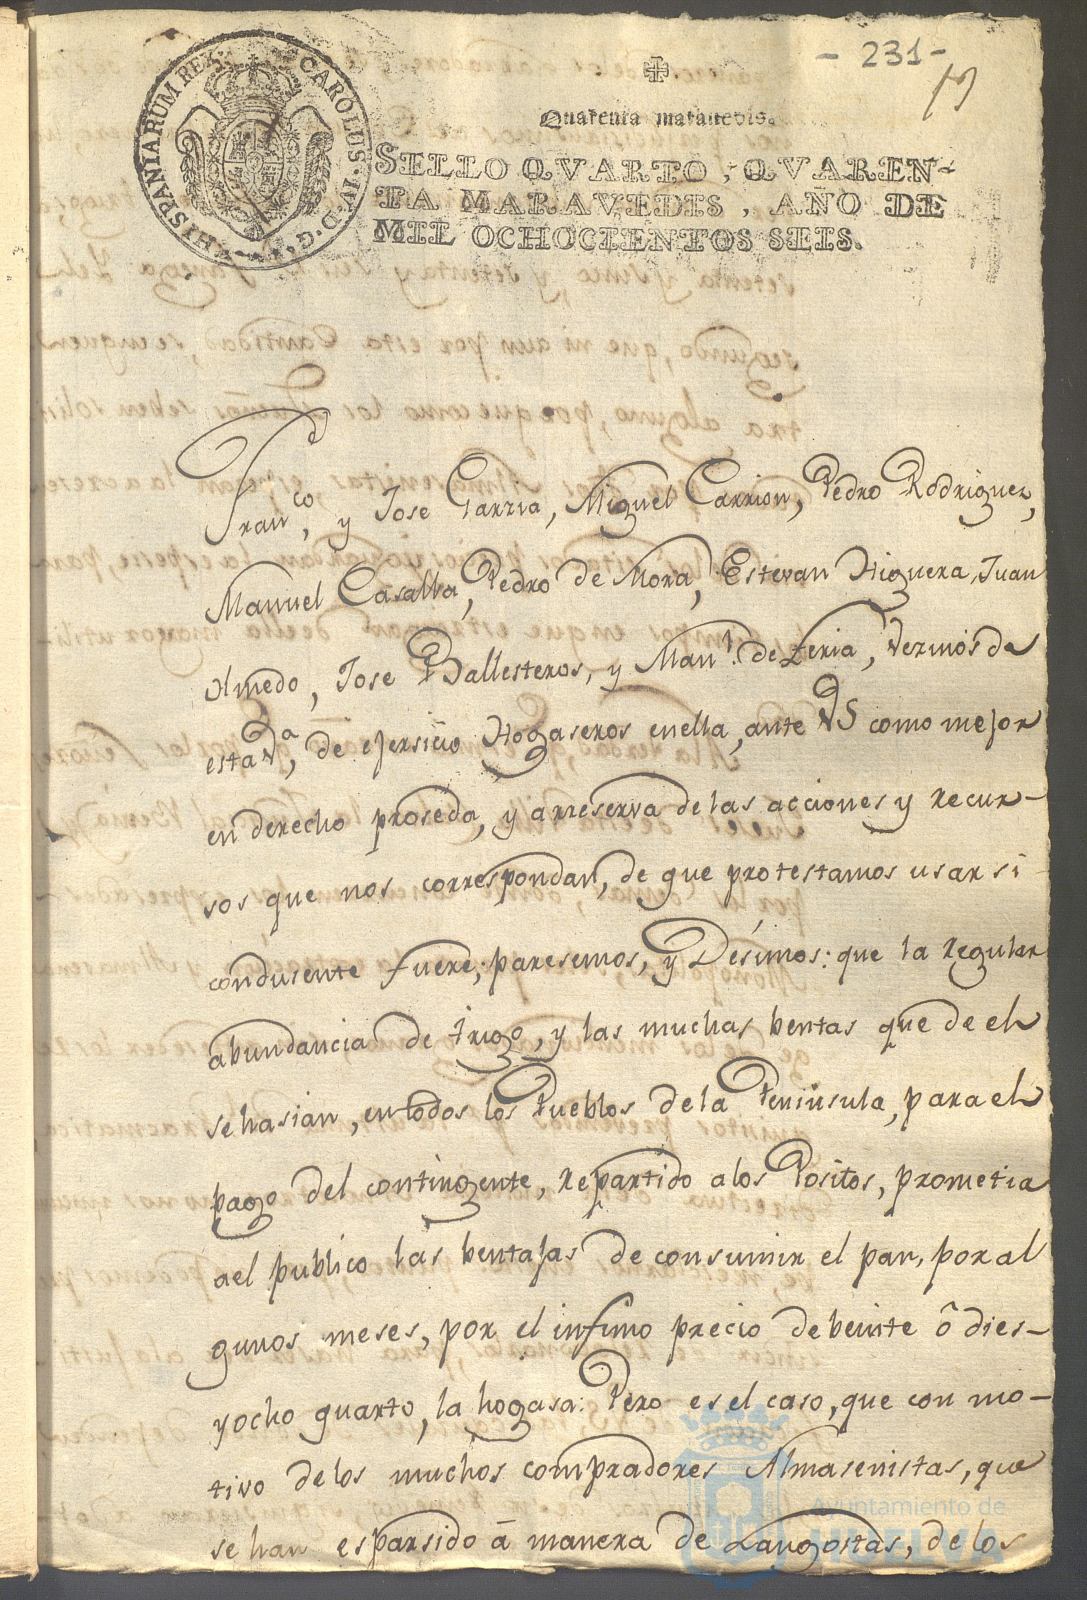 - 231 -
HISPANIARUM REX. CAROLUS. IV. D. G.
Quarenta maravedis.
SELLO QVARTO, QVAREN-
TA MARAVEDIS, AÑO DE
MIL OCHOCIENTOS SEIS.
Franco, y Jose Garzia, Miguel Carrion, Pedro Rodriguez,
Manuel Casalla, Pedro de Mora, Estevan Higuera, Juan
Olmedo, Jose Ballesteros, y Manl. de Feria, vezinos de
esta Va, de ejersicio Hogaseros enella, ante VS como mejor
en derecho proseda, y arreserva de las acciones y recur-
sos que nos correspondan, de que protestamos usar si
condusente fuere; paresemos, y Desimos: que la regular
abundancia de trigo, y las muchas bentas que de el
se hasian, en todos los Pueblos de la Peninsula, para el
pago del contingente, repartido alos Positos, prometia
ael publico las bentajas de consumir el pan, por al
gunos meses, por el infimo precio de beinte ô dies-
yocho quarto, la hogasa: Pero es el caso, que con mo-
tivo de los muchos compradores Almasenistas, que
se han esparsido â manera de Langostas, de los
Ayuntamiento de
HUELVA